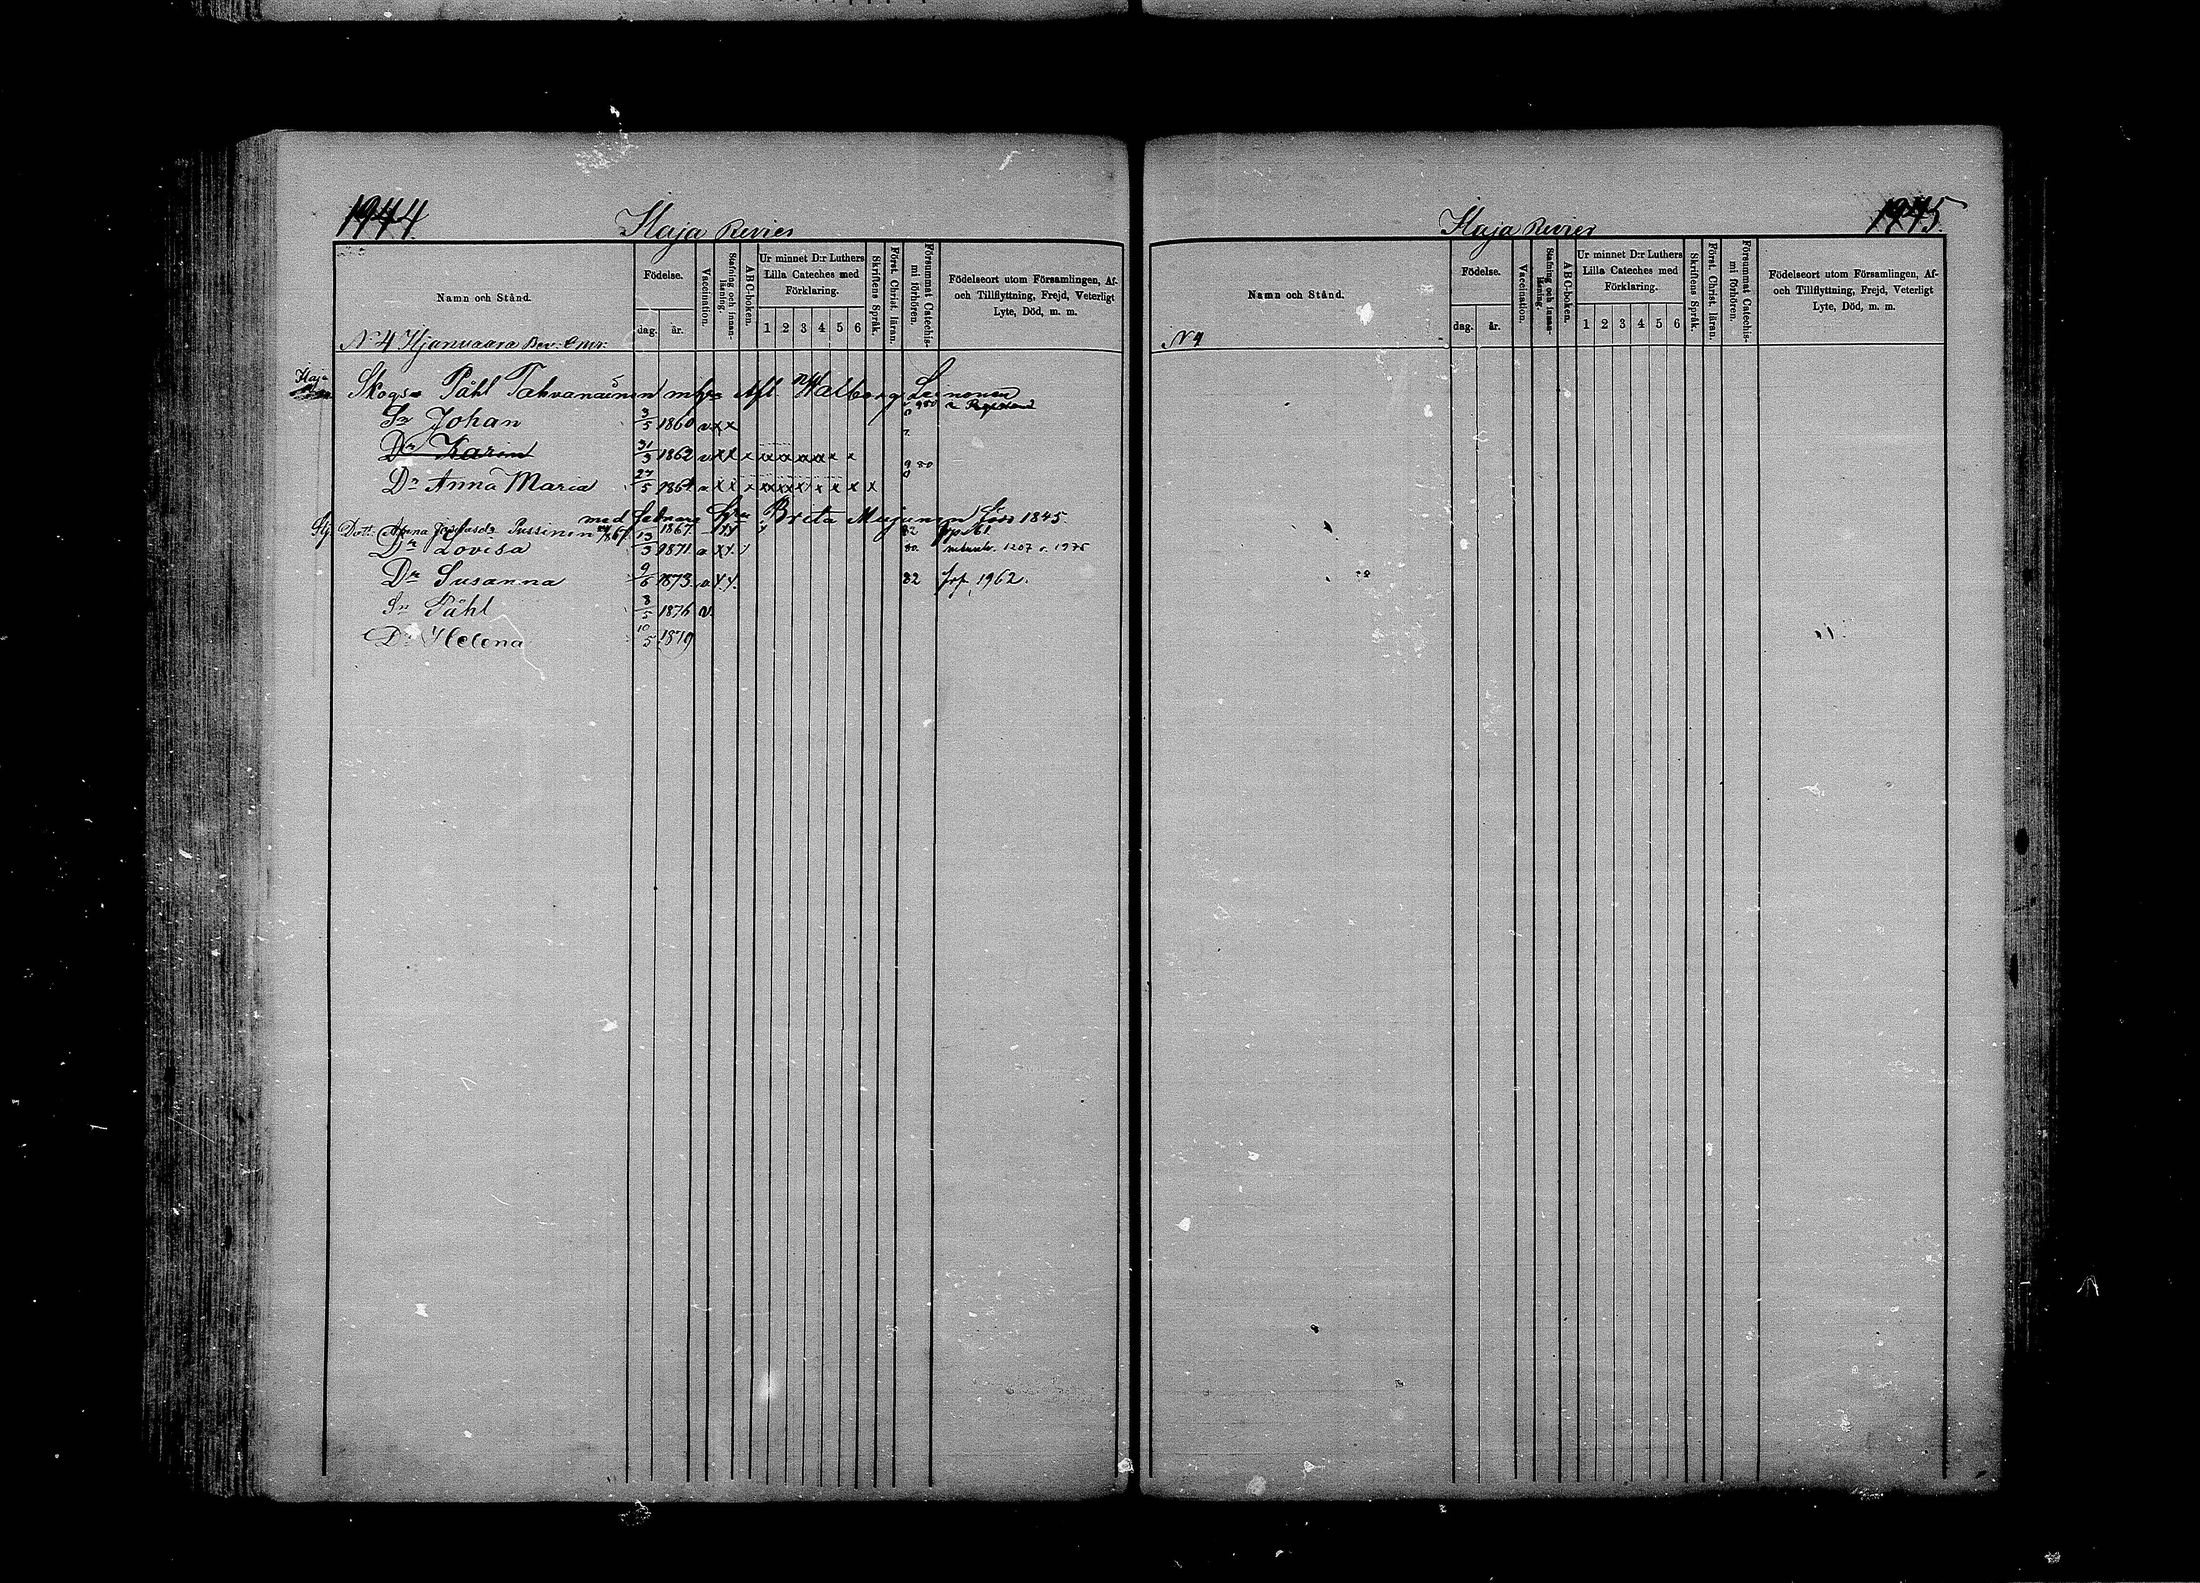 1944.
Haja Revier
Namn och Stånd.
Födelse.
dag. år.
Vaccination.
Stafning och innanläsning.
ABC-boken.
Ur minnet D:r Luthers Lilla Cateches med Förklaring.
1 2 3 4 5 6
Skriftens Språk.
Först. Christ. läran.
Försummat Catechismi förhören.
Födelseort utom Församlingen, Af- och Tillflyttning, Frejd, Veterligt Lyte, Död, m. m.
N 4
Haja
Skogs Påhl Tahvanainen Afl. Walborg
Sn Johan 3/5 1860 v x x
Dr Karin 31/3 1862 v x x x
Dr Anna Maria 27/5 1864
med sednare Hu Brita Maijunen 1845.
Dott. Anna Pussinen 1867 82
Dr Lovisa 13/3 1871 80. 1207 o. 1975
Dr Susanna 9/6 1873 82 1962.
Sn Påhl 8/5 1876 v
Dr Helena 10/5 1879
Haja Revier
1945.
Namn och Stånd.
Födelse.
dag. år.
Vaccination.
Stafning och innanläsning.
ABC-boken.
Ur minnet D:r Luthers Lilla Cateches med Förklaring.
1 2 3 4 5 6
Skriftens Språk.
Först. Christ. läran.
Försummat Catechismi förhören.
Födelseort utom Församlingen, Af- och Tillflyttning, Frejd, Veterligt Lyte, Död, m. m.
N 4